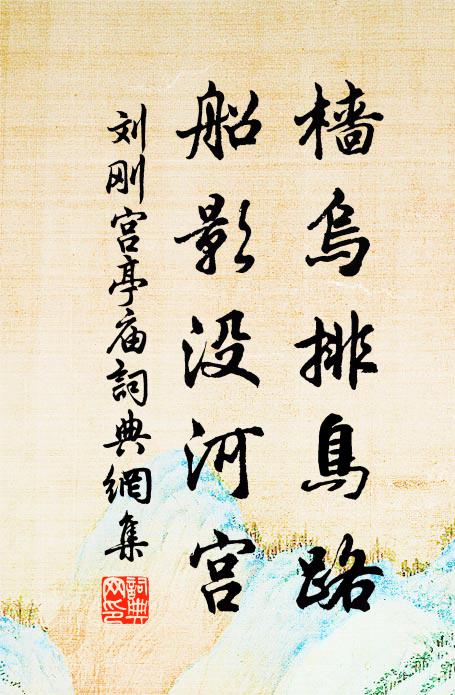 檣烏排鳥路
船影没河宫
刘刚宫亭庙詞典網集
詞典